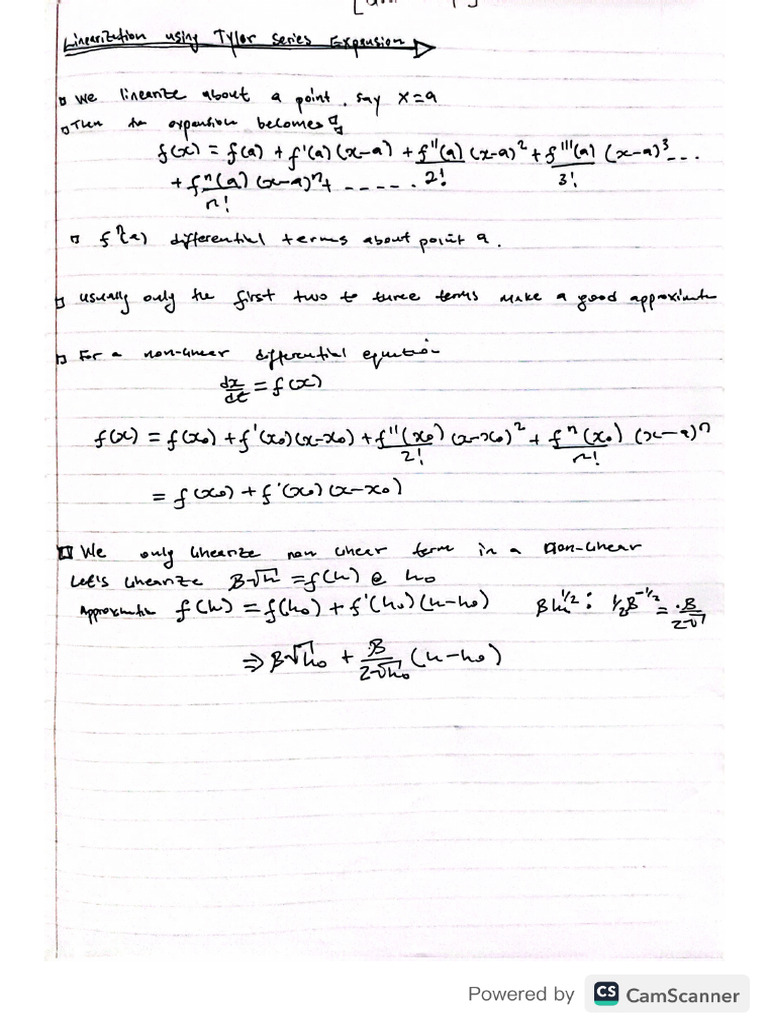 Linearization using Tylor series Expansion
We linearize about a point, say x=a
Then the expantion becomes
f(x) = f(a) + f'(a) (x-a) + f''(a)/2! (x-a)² + f'''(a)/3! (x-a)³ ...
+ fⁿ(a)/n! (x-a)ⁿ + - - - - -
fⁿ(a) differential terms about point a.
usually only the first two to three terms make a good approximate
For a non-linear differential equation
dx/dt = f(x)
f(x) = f(x₀) + f'(x₀)(x-x₀) + f''(x₀)/2! (x-x₀)² + fⁿ(x₀)/n! (x-a)ⁿ
= f(x₀) + f'(x₀) (x-x₀)
We only linearize non linear term in a non-linear
Let's linearize B√h = f(h) @ h₀
Approximate f(h) = f(h₀) + f'(h₀)(h-h₀) Bh^1/2 : 1/2B^-1/2 = B/2√
⇒ B√h₀ + B/2√h₀ (h-h₀)
Powered by CS CamScanner